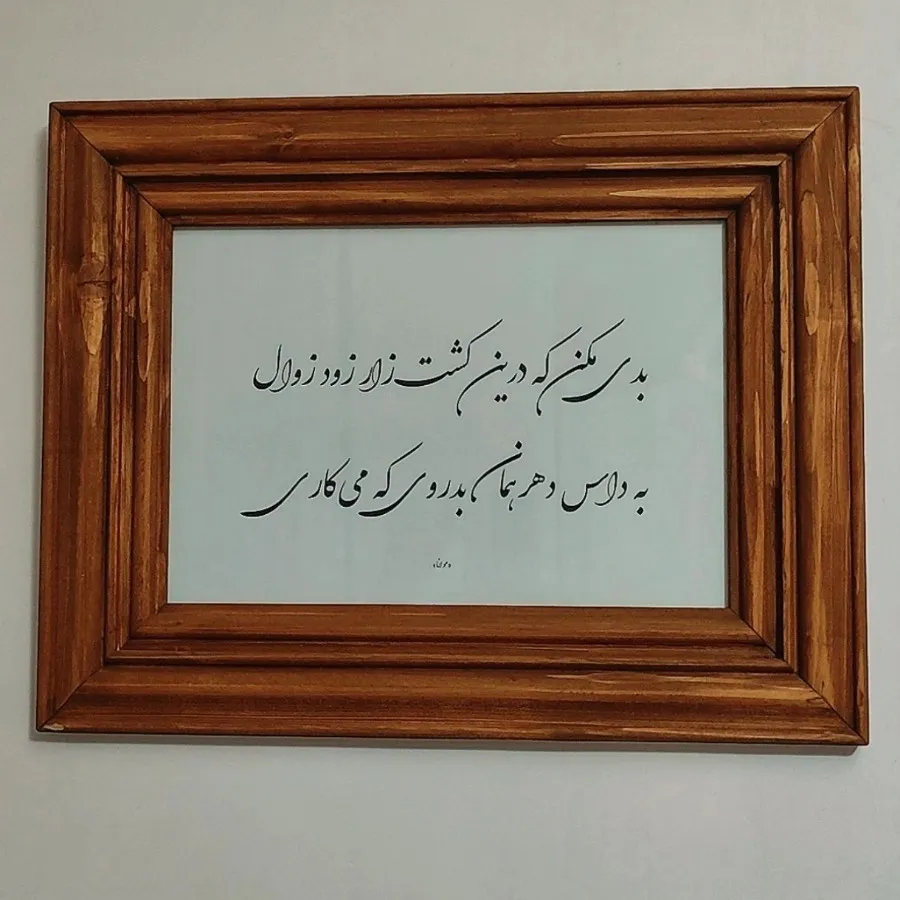 بدی مکن که درین کشت زار زود زوال
به داس دهر همان بدروی که می کاری
«مولانا»